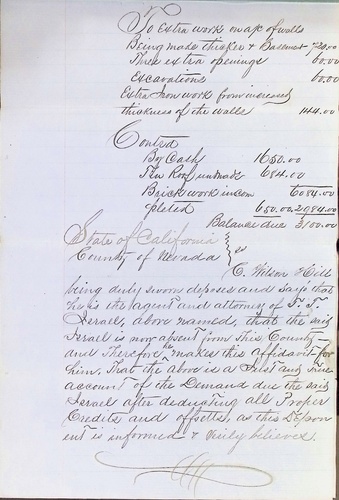 To Extra work on a/c of walls
Being made thicker & Basement 720.00
Three extra openings 60.00
Excavations 60.00
Extra Iron work from increased
thickness of the walls 144.00
Contra
By Cash 1650.00
Tin Roof unmade 684.00
Brick work incom 6084.00
pleted 650.00 2984.00
Balance due 3100.00
State of California
County of Nevada } ss
C. Wilson Hill
being duly sworn deposes and says that
he is the agent and attorney of
Israel, above named, that the said
Israel is now absent from this County
and Therefore he makes this Affidavit for
him, That the above is a Just and true
account of the Demand due the said
Israel after deducting all Proper
Credits and offsetts, as this Depon
ent is informed & Verily believes